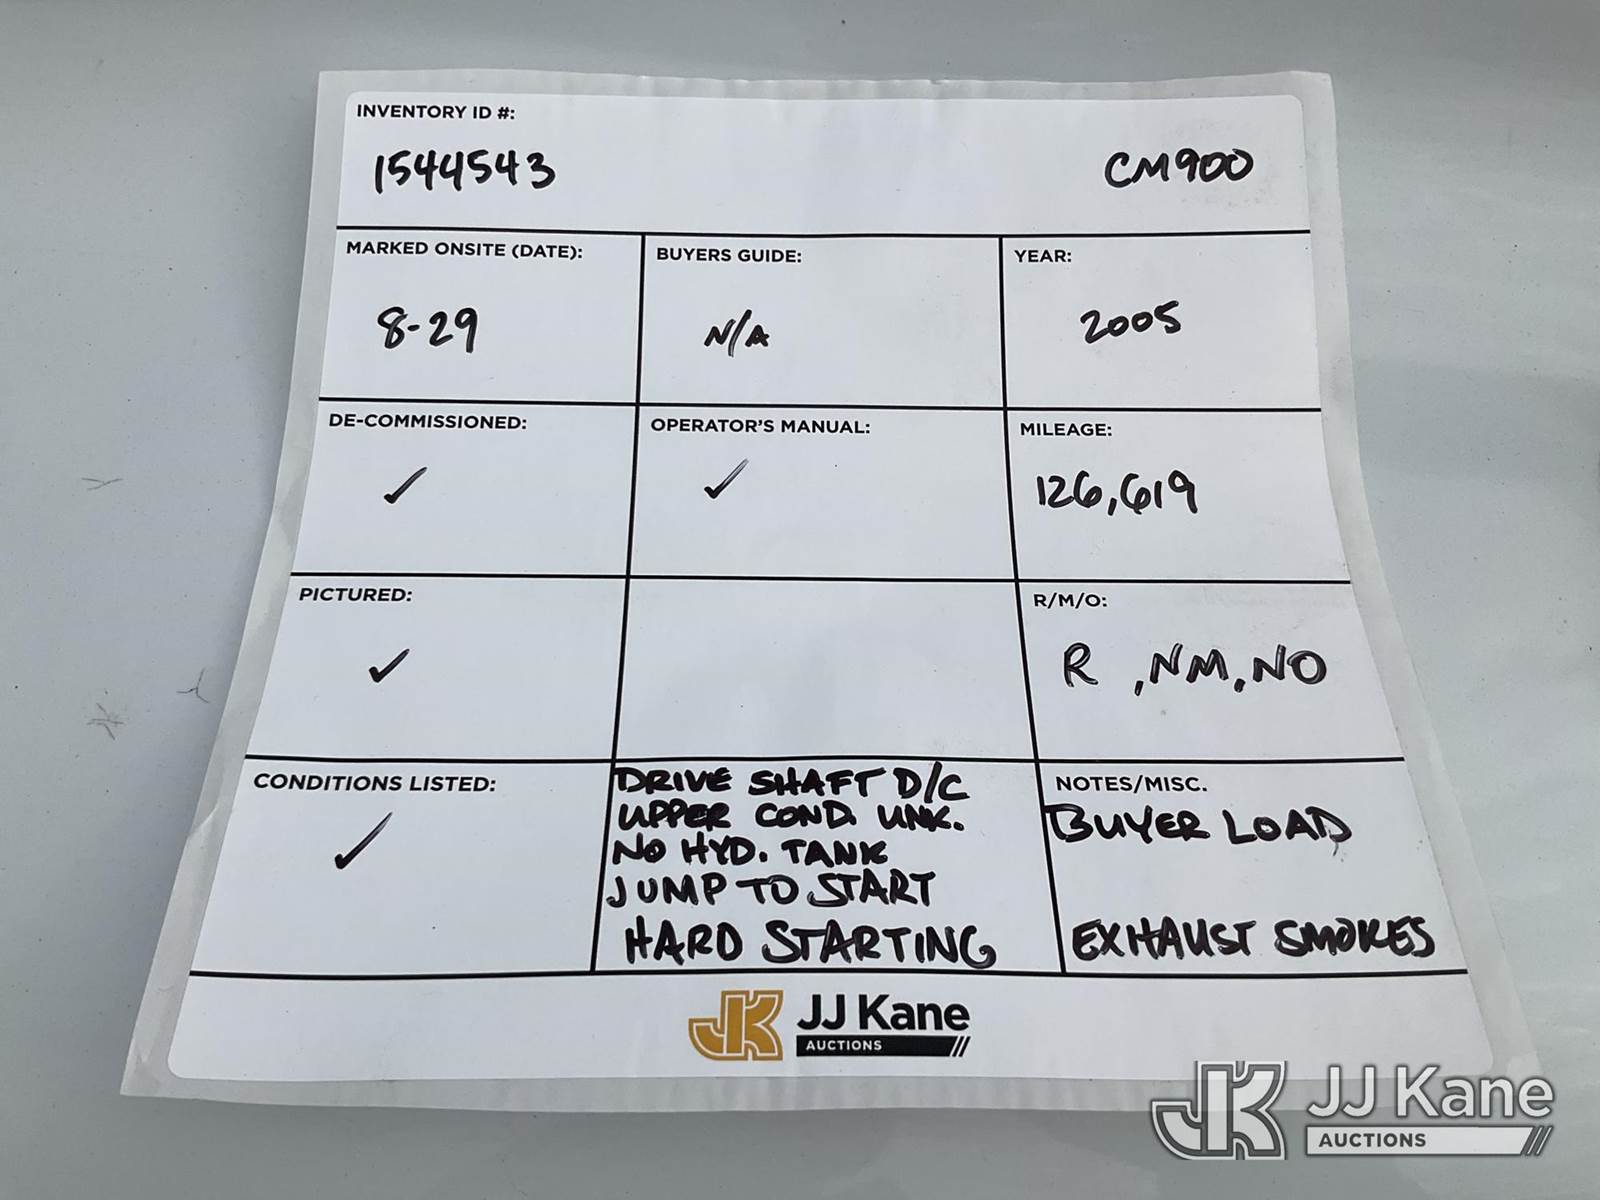 INVENTORY ID #:
1544543 CM900
MARKED ONSITE (DATE): BUYERS GUIDE: YEAR:
8-29 N/A 2005
DE-COMMISSIONED: OPERATOR'S MANUAL: MILEAGE:
✓ ✓ 126,619
PICTURED: R/M/O:
✓ R, NM, NO
CONDITIONS LISTED:
✓
DRIVE SHAFT D/C
UPPER COND. UNK.
NO HYD. TANK
JUMP TO START
HARD STARTING
NOTES/MISC.
BUYER LOAD
EXHAUST SMOKES
JK JJ Kane
AUCTIONS
JK JJ Kane
AUCTIONS